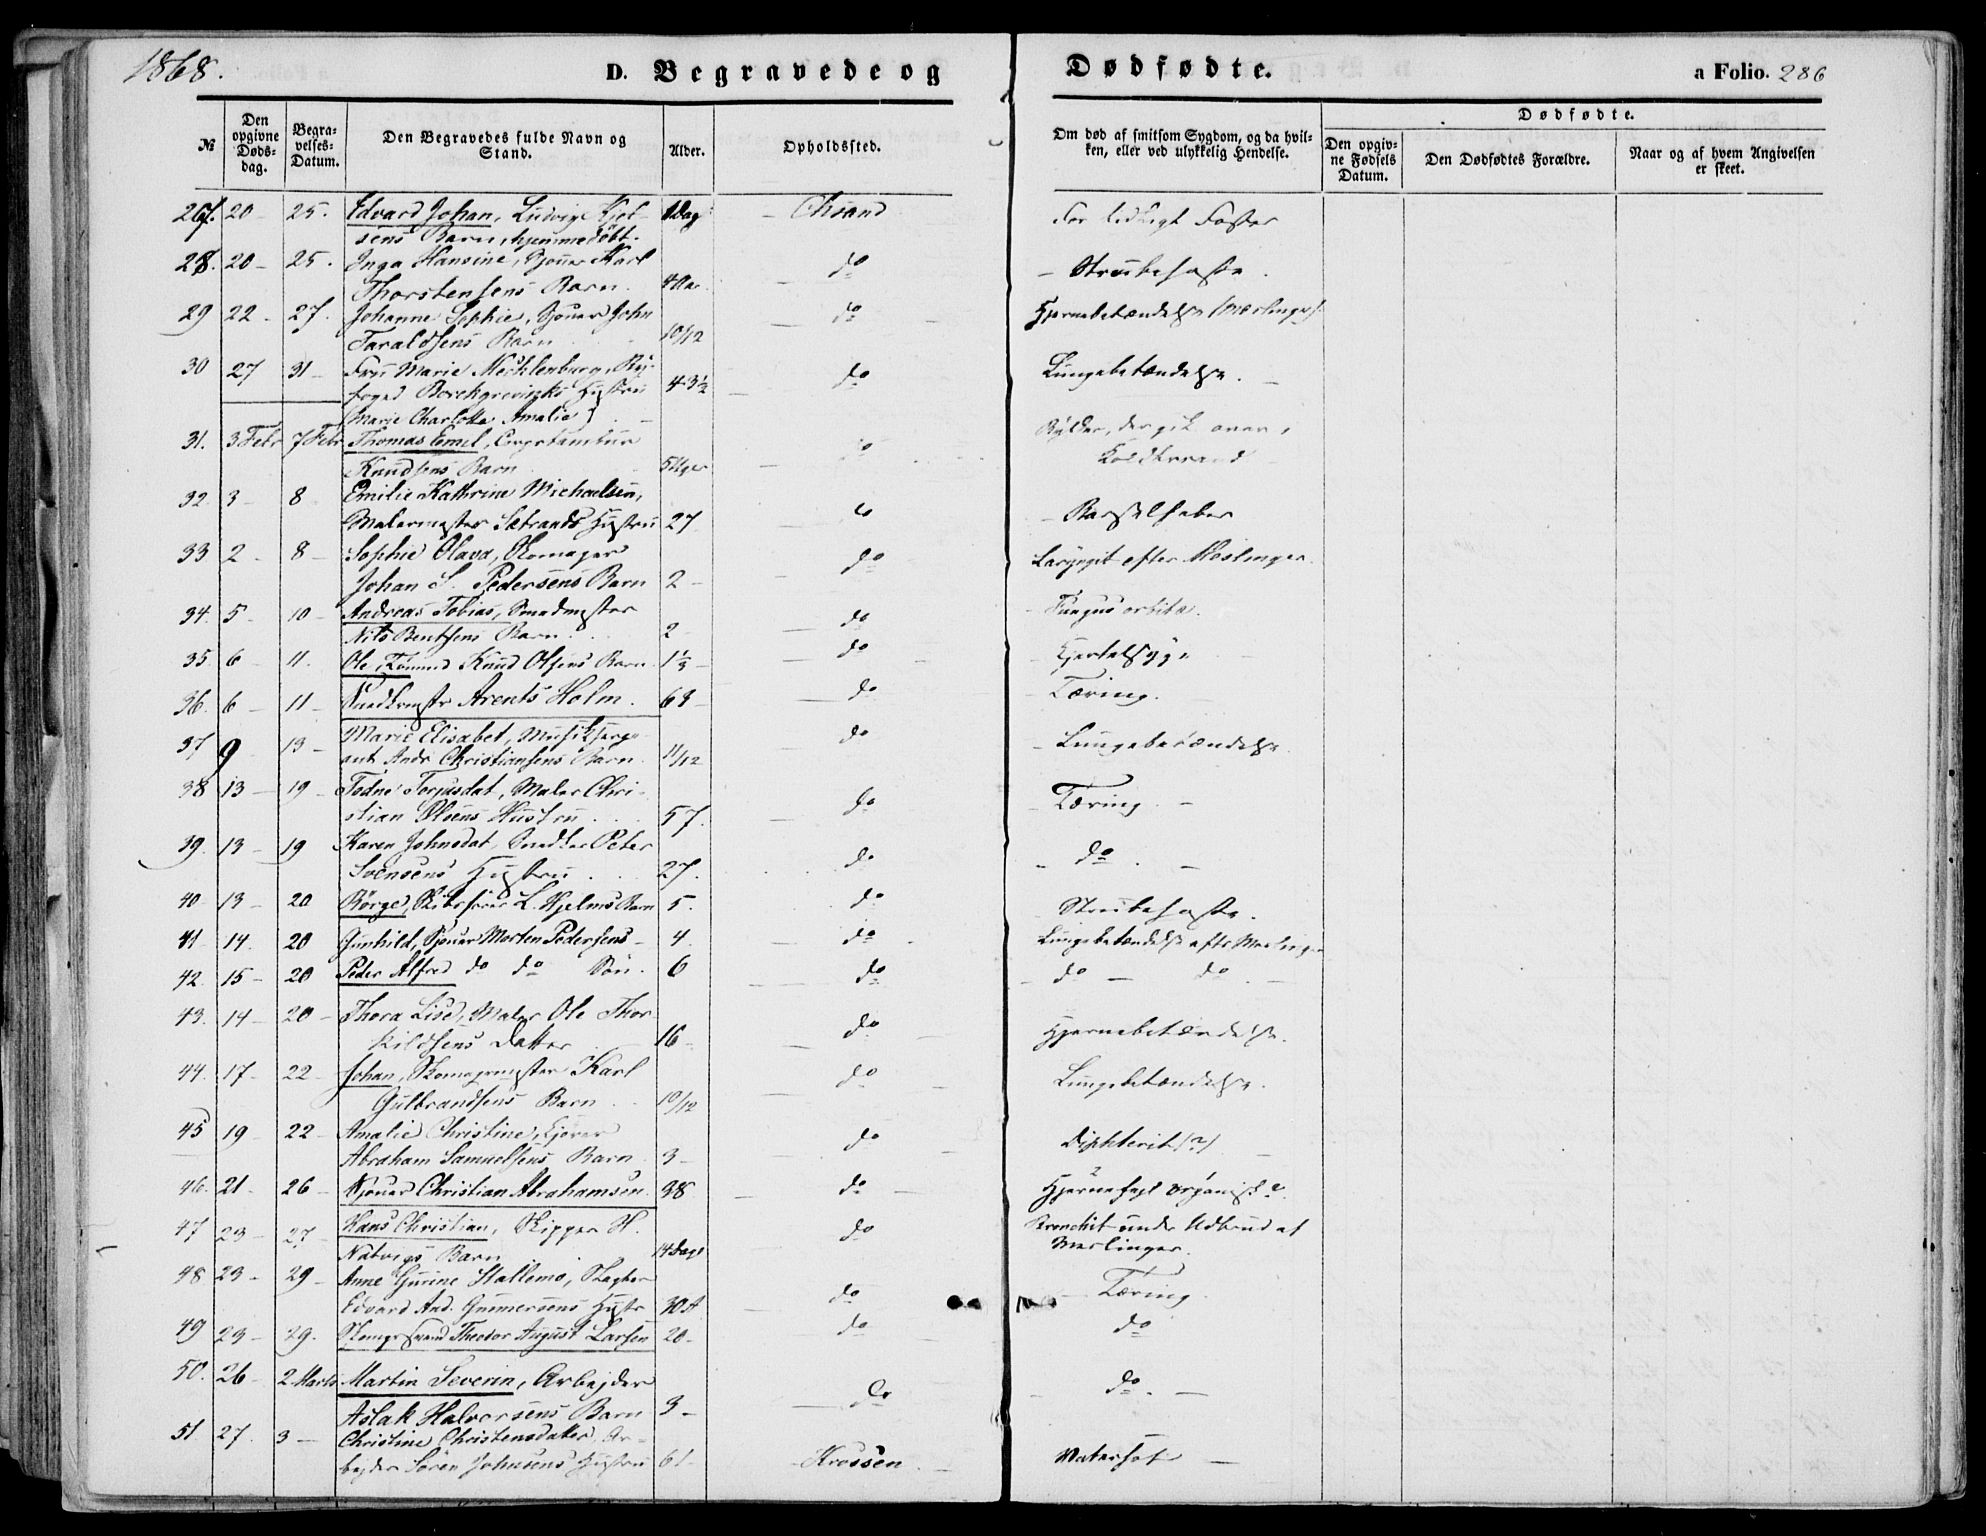 1868.
D. Begravede og Dødfødte. a Folio. 286
№ Den opgivne Dødsdag. Begravelses-Datum. Den Begravedes fulde Navn og Stand. Alder. Opholdssted. Om død af smitsom Sygdom, og da hvilken, eller ved ulykkelig Hendelse. Dødfødte.
Den opgivne Fødsels Datum. Den Dødfødtes Forældre. Naar og af hvem Angivelsen er skeet.
27. 20 - 25. Edvard Johan, Ludvig Kjel- 1 Dag - Chsand For tidligt Foster
sens Barn, hjemmedöbt.
28. 20 - 25. Inga Hansine, Sjouer Karl do - Strubehoste.
Thorstensens Barn. 4 Aar
29 22 - 27. Johanne Sophie, Sjouer John do Hjernebetændelse (Meslinger)
Taraldsens Barn 10/12
30 27 31 - Fru Marie Mecklenburg, By- do Lungebetændelse.
foged Borchgrevincks Hustru 43½
(Marie Charlotte Amalie)
31. 3 Febr 7 Febr Thomas Emil, Corpstambur do Bylder, der gik over i
Knudsens Barn 5 Uger Koldbrand
32 3 - 8 Emilie Kathrine Michaelsen,
Malermester Sætrands Hustru 27 do - Barselfeber
33 2 - 8 - Sophie Olava, Skomager do Laryngit efter Meslinger.
Johan S. Pedersens Barn 2 -
34. 5 - 10 - Andreas Tobias, Smedmester do - Fungus orbitæ.
Nils Bentsens Barn. 2 -
35 6 - 11. Ole, Tømmd Knud Olsens Barn 1⅓ - do - Kjertelsyge
36. 6 - 11 - Snedkmstr Arents Holm. 68 - do - Tæring.
37 9 13 - Marie Elisabet, Musikserge- do - Lungebetændelse.
ant Andr Christiansens Barn 11/12
38 13 - 19 - Todne Torjusdat, Maler Chri-
stian Olsens Hustru 57. do - Tæring. -
39. 13 - 19 Karen Johnsdat, Snedker Peter
Svensens Hustru 27. do - do. -
40 - 13 - 20 Börge, Skibsfører L. Hjelms Barn 5. do - Strubehoste.
41 - 14. 20 Gunhild, Sjouer Morten Pedersens - 4. do Lungebetændelse efter Meslinger
42. 15 - 20 Peder Alfred do do Sön. 6 do do - do -
43. 14 - 20 - Thora Lise, Maler Ole Thor-
kildsens Datter 16 - do Hjernebetændelse.
44. 17 - 22 - Johan, Skomagermester Karl do Lungebetændelse.
Gulbrandsens Barn 10/12
45 19 - 22 - Amalie Christine, Kjører do Diphterit (?)
Abraham Samuelsens Barn 3 -
46. 21 - 26 - Sjouer Christian Abrahamsen. 38 do - Hjernefeil organisk?
47 23 - 27 - Hans Christian, Skipper H. do Bronchit under Udbrud af
Natvigs Barn 14 Dage Meslinger.
48 23 - 29 - Anne Gurine Stallemo, Slagter Tæring.
Edvard And. Gunnersens Hustr 30 A do
49 23 - 29. Skomgrsvend Theodor August Larsen 20 - do do
50. 26 - 2 Marts Martin Severin, Arbejder do. -
Aslak Halvorsens Barn 3 - do
51 27. 3 - Christine Christensdatter, Ar-
bejder Sören Johnsens Hustru 61 - Krossen Vatersot -